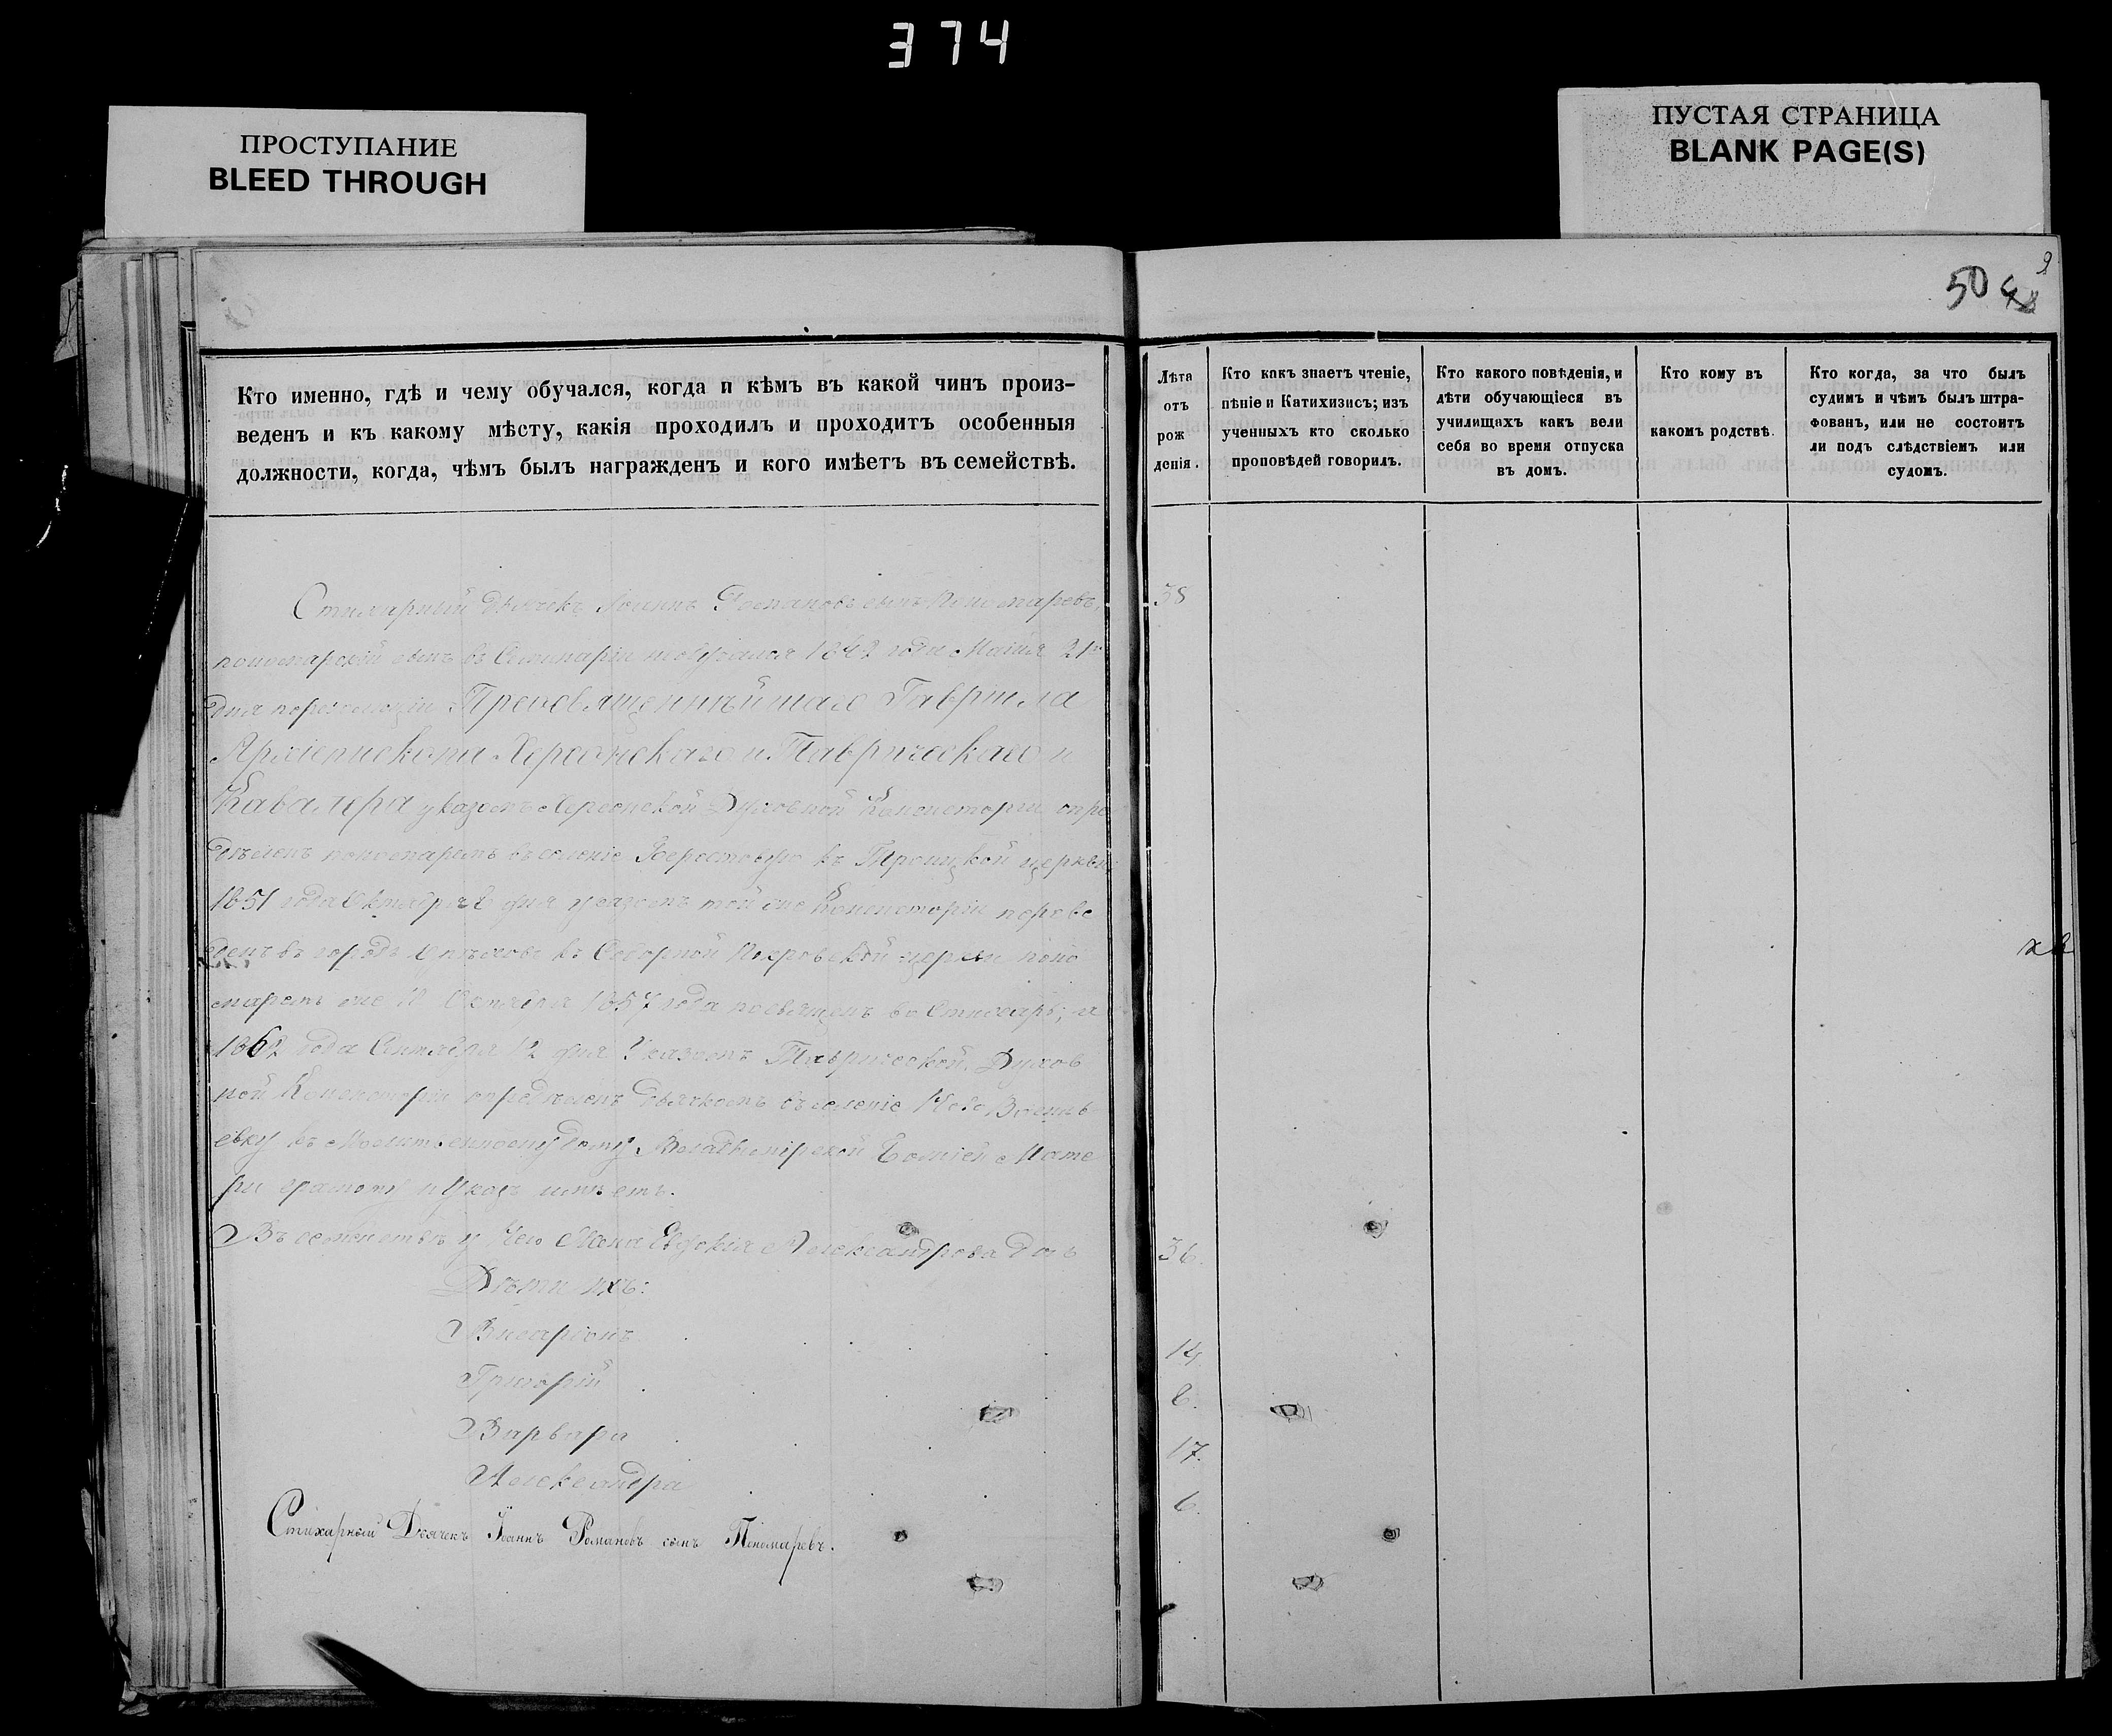 374
ПРОСТУПАНИЕ
BLEED THROUGH
ПУСТАЯ СТРАНИЦА
BLANK PAGE(S)
50
Кто именно, гдѣ и чему обучался, когда и кѣмъ въ какой чинъ произ-
веденъ и къ какому мѣсту, какія проходилъ и проходитъ особенныя
должности, когда, чѣмъ былъ награжденъ и кого имѣетъ въ семействѣ.
Лѣта
отъ
рож
денія.
Кто какъ знаетъ чтеніе,
пѣніе и Катихизисъ; изъ
ученныхъ кто сколько
проповѣдей говорилъ.
Кто какого повѣденія, и
дѣти обучающіеся въ
училищахъ какъ вели
себя во время отпуска
въ домъ.
Кто кому въ
какомъ родствѣ.
Кто когда, за что былъ
судимъ и чѣмъ былъ штра-
фованъ, или не состоитъ
ли подъ слѣдствіемъ или
судомъ.
Стихарный Дьячекъ Іоаннъ Романовъ сынъ Пономаревъ, 38
пономарскій сынъ въ Семинаріи необучался 1842 года Маія 21го
дня по резолюціи Преосвященнѣйшаго Гавріила
Архіепископа Херсонскаго и Таврическаго и
Кавалера указомъ Херсонской Духовной Консисторіи опре
дѣленъ пономаремъ въ селеніе Берестовую къ Троицкой церкви
1851 года Октября дня указомъ той же Консисторіи переве
денъ въ городъ Орѣховъ къ Соборной Покровской церкви поно
маремъ же 10 Октября 1857 года посвященъ въ Стихарь, а
1862 года Сентября 12 дня Указомъ Таврической Духов
ной Консисторіи опредѣленъ дьячкомъ въ селеніе Ново Василь
евку къ Молитвенному дому Владимірской Божіей Мате
ри грамоту и Указъ имѣетъ.
Въ семействѣ у Него Жена Евдокія Александрова дочь 36.
Дѣти ихъ:
Висаріонъ 14.
Григорій 8.
Варвара 17.
Александра 6.
Стихарный Дьячекъ Іоаннъ Романовъ сынъ Пономаревъ.